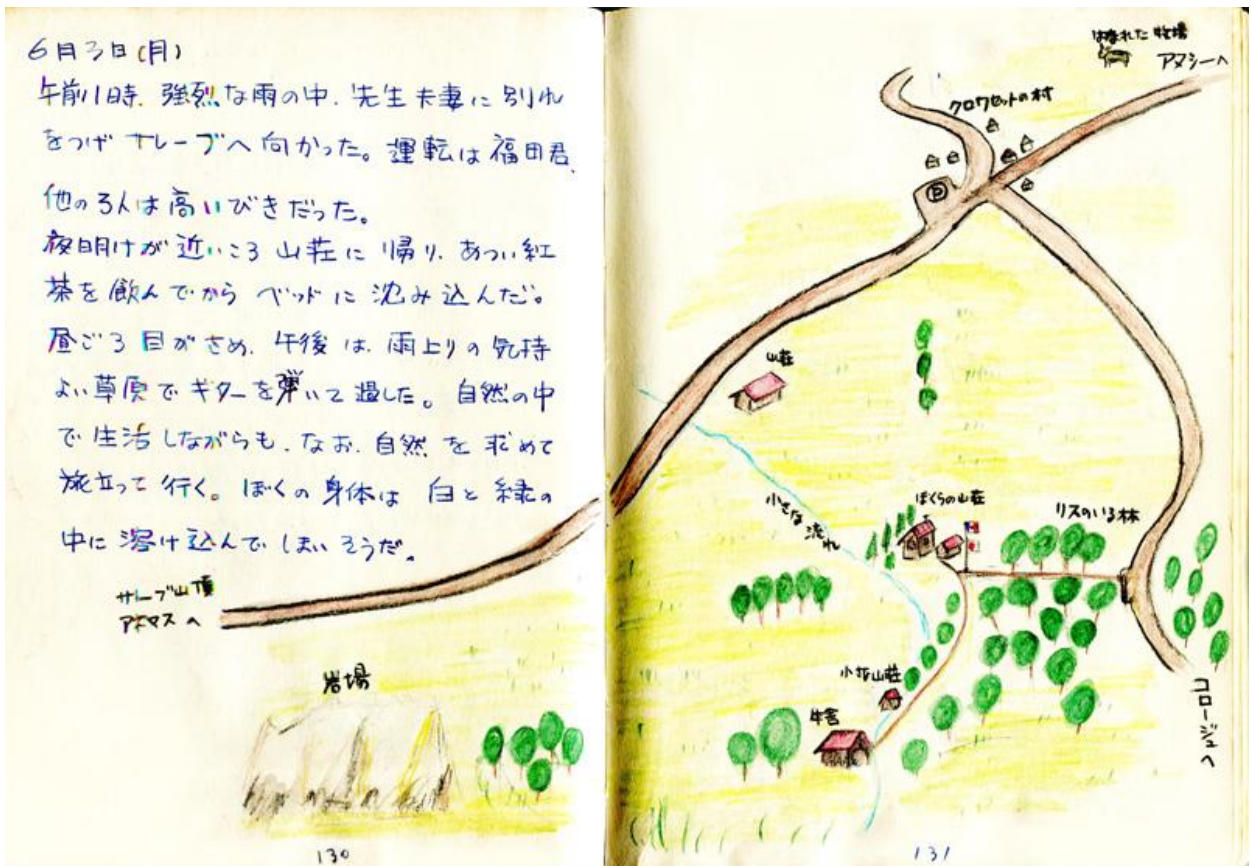 6月3日(月)
午前1時、強烈な雨の中、先生夫妻に別れ
をつげサレーブへ向かった。運転は福田君、
他の3人は高いびきだった。
夜明けが近いころ山荘に帰り、あつい紅
茶を飲んでからベッドに沈み込んだ。
昼ごろ目がさめ、午後は、雨上りの気持
よい草原でギターを弾いて過した。自然の中
で生活しながらも、なお、自然を求めて
旅立って行く。ぼくの身体は白と緑の
中に溶け込んでしまいそうだ。
サレーブ山頂
アネマスへ
岩場
130
はなれた牧場
アヌシーへ
クロワゼットの村
P
山荘
小さな流れ
ぼくらの山荘
リスのいる林
小さな山荘
牛舎
コロージュへ
131